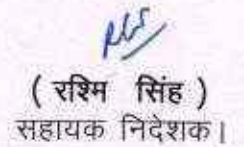 ( रश्मि सिंह )
सहायक निदेशक।